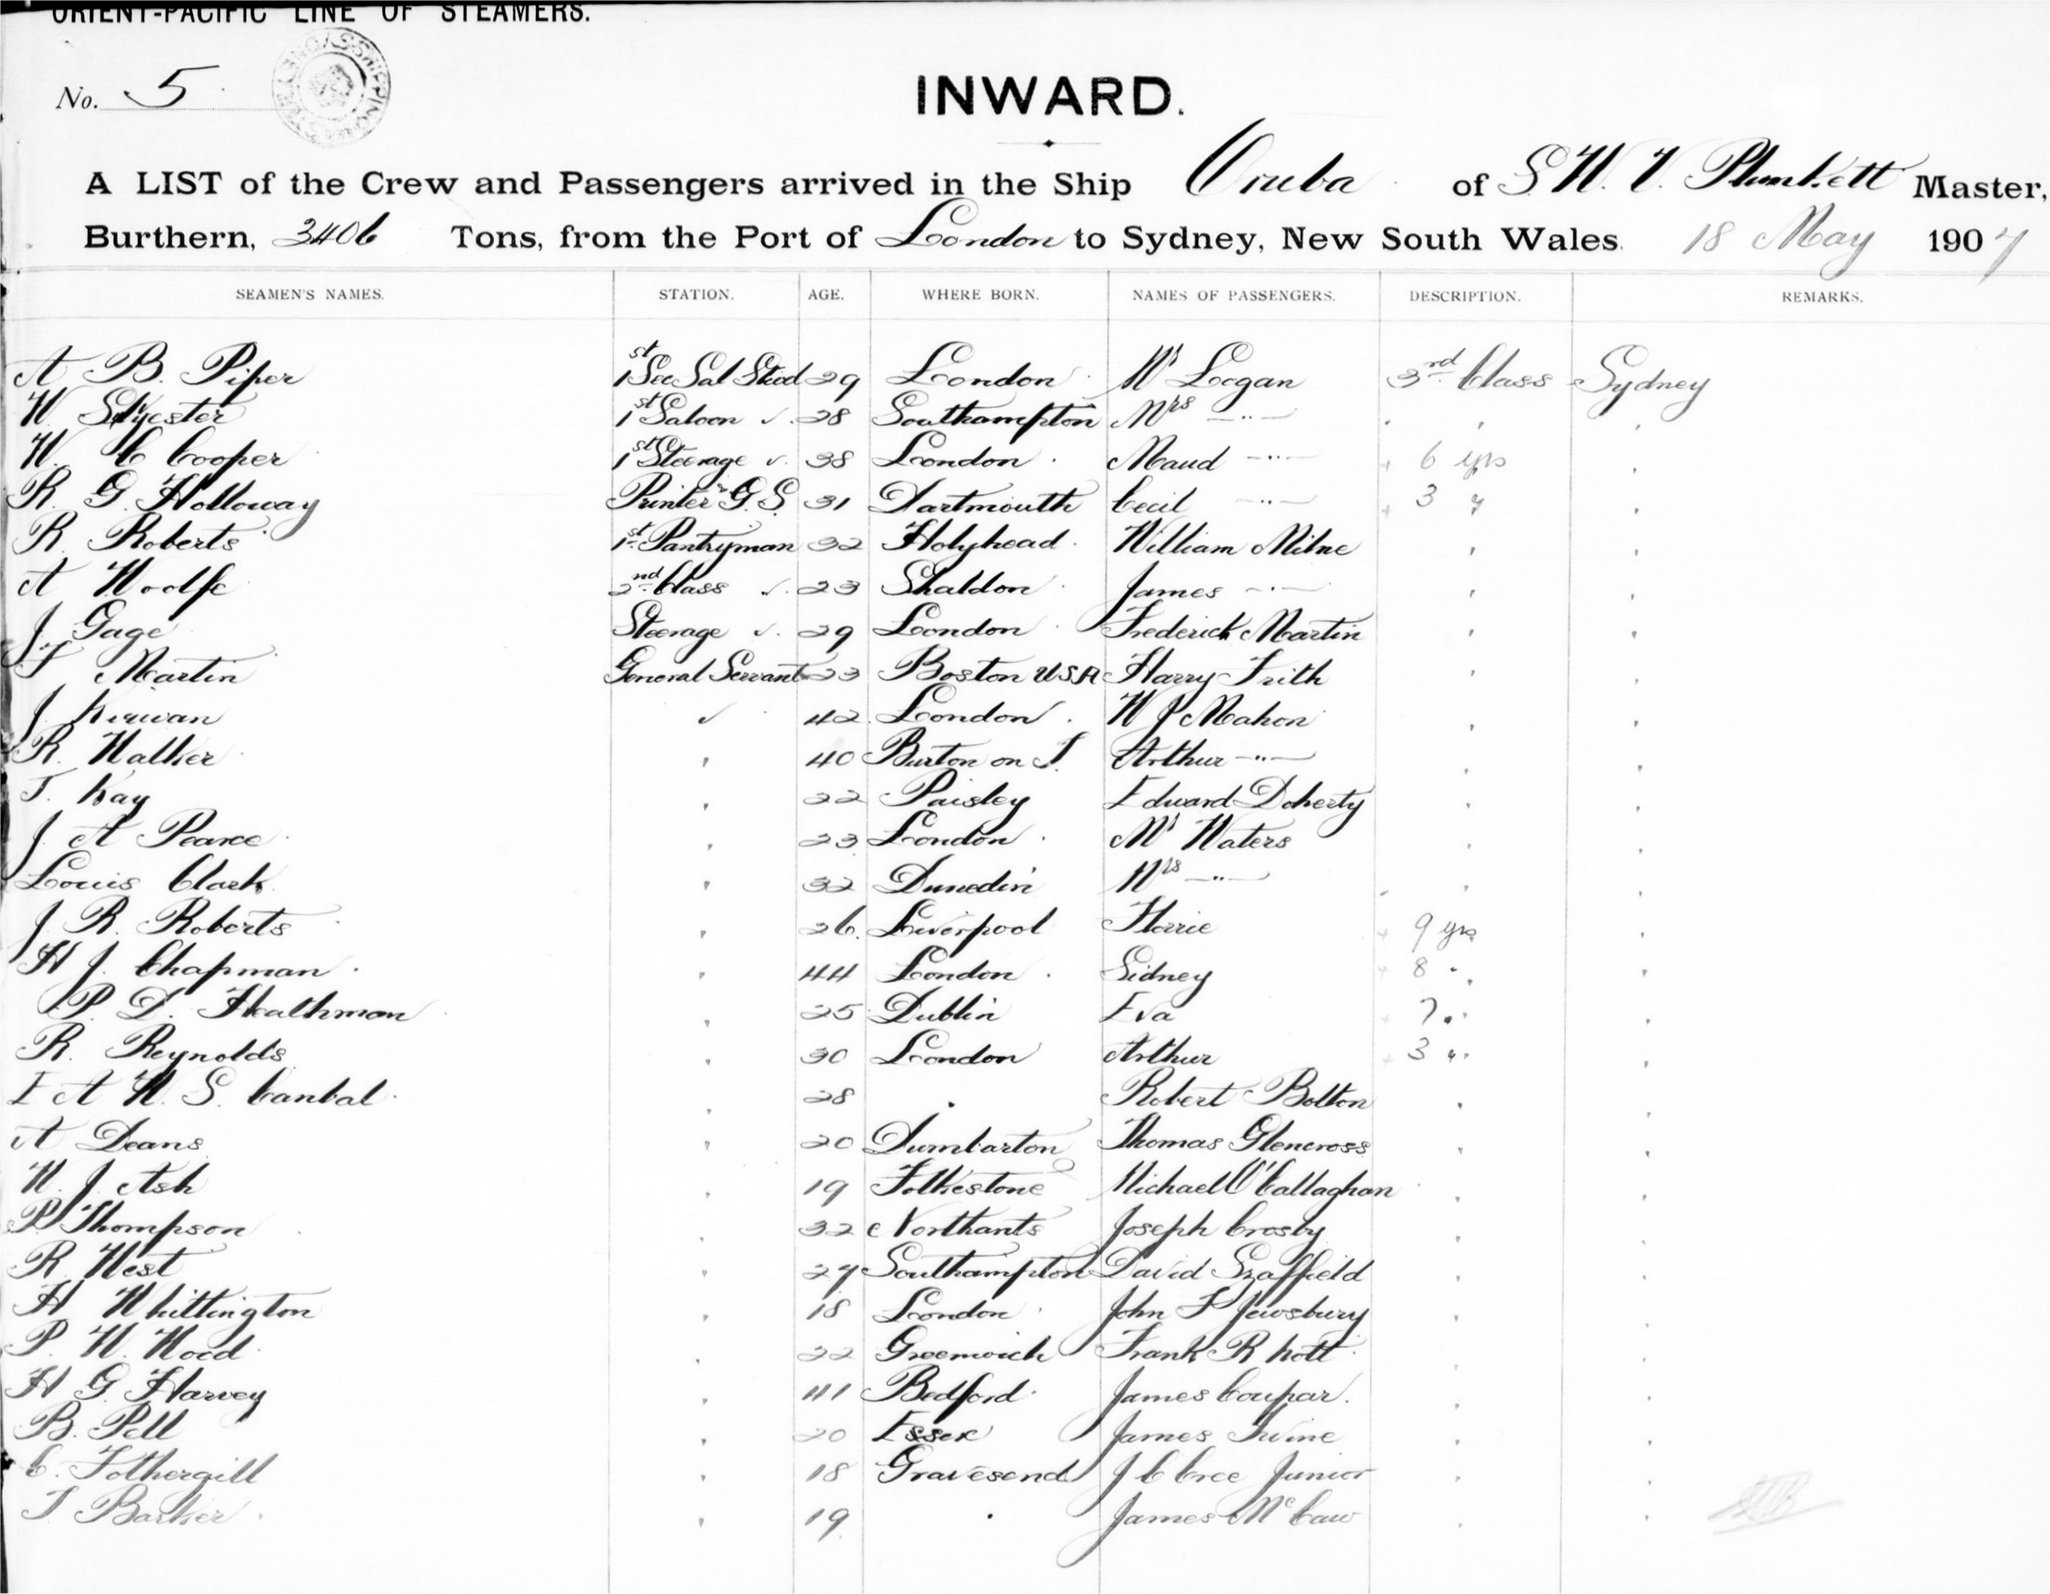 ORIENT-PACIFIC LINE OF STEAMERS.
No. 5
INWARD.
A LIST of the Crew and Passengers arrived in the Ship Oruba of S. W. V. Plunkett Master,
Burthern, 3406 Tons, from the Port of London to Sydney, New South Wales. 18 May 1907
SEAMEN'S NAMES. STATION. AGE. WHERE BORN. NAMES OF PASSENGERS. DESCRIPTION. REMARKS.
A B. Piper 1st Sec Sal Stwd 29 London Mr Logan 3rd Class Sydney
W 1st Saloon " 28 Southampton Mrs —"—
W. C Cooper 1st Steerage " 38 London Maud —"— 6 yrs
R. G. Holloway Printer G. S. 31 Dartmouth Cecil —"— 3 "
R. Roberts 1st Pantryman 32 Holyhead William Milne
A Woolfe 2nd Class " 23 Shaldon James —"—
J. Gage Steerage " 29 London Frederick Martin
F Martin General Servant 23 Boston USA Harry Frith
J. Kirwan " 42 London W J Mahon
R. Walker " 40 Burton on T. Arthur —"—
T. Kay " 22 Paisley Edward Doherty
J. A Pearce " 23 London Mr Waters
Louis Clark " 32 Dunedin Mrs —"—
J R. Roberts " 26 Liverpool Florrie 9 yrs
H J. Chapman " 44 London Sidney 8 "
P. D. Heathman " 25 Dublin Eva 7 "
R. Reynolds " 30 London Arthur 3 "
E A W. S. " 28 " Robert Bolton
A Deans " 20 Dumbarton Thomas Glencross
W. J. Ash " 19 Folkestone Michael O'Callaghan
P. Thompson " 32 Northants Joseph Crosby
R. West " 27 Southampton David
H Whittington " 18 London John F Jewsbury
P. W. Wood " 22 Greenwich Frank R Nott
H G. Harvey " 41 Bedford James Coupar.
B. Pell " 20 Essex James Irvine
C. Fothergill " 18 Gravesend J C Cree Junior
T Barker " 19 " James McCaw